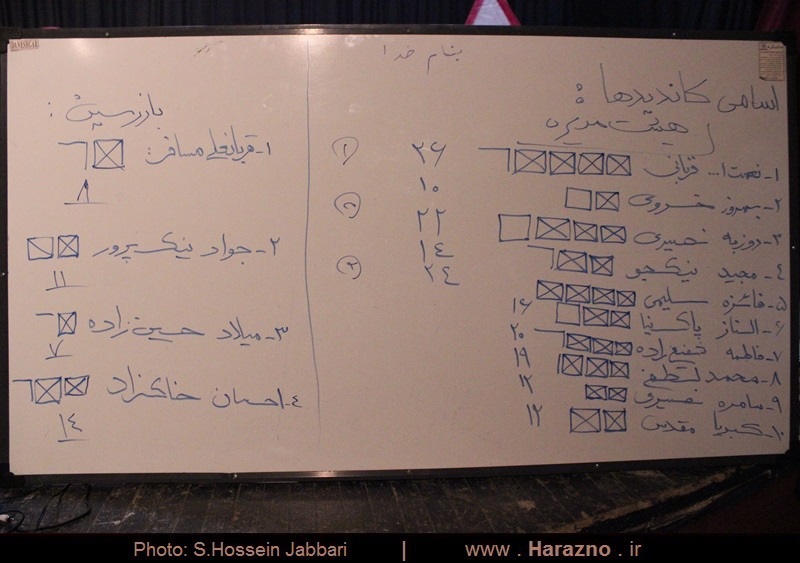 بنام خدا
اسامی کاندیدها :
هیئت مدیره
۱- نعمت ا... قربانی ۲۶
۲- بهروز خسروی ۱۰
۳- روزبه نصیری ۲۲
۴- مجید نیکجو ۱۴
۵- فائزه سلیمی ۲۴
۶- الناز پاکنیا ۱۶
۷- فاطمه شفیع زاده ۲۰
۸- محمد لطفی ۱۹
۹- سامره نصیری ۱۲
۱۰- کبریا مقدس ۱۲
۱
۲
۳
بازرسین :
۱- قربانعلی مسافر :
۸
۲- جواد نیک پرور
۱۱
۳- میلاد حسین زاده
۷
۴- احسان خاکزاد
۱۴
Photo: S.Hossein Jabbari | www . Harazno . ir